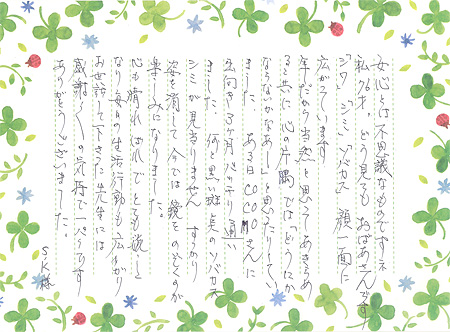 女心とは不思議なものですネ
私74才。どう見てもおばあさんです
シワ、シミ、ソバカス 顔一面に
広がっています
年だから当然と思ってあきらめ
ると共に心の片隅では「どうにか
ならないかなあー」と思ったりしてい
ました。ある日COCOMさんに
出向き3ヶ月バッチリ通い
ました。何と黒い斑点のソバカス
シミが見当りません すっかり
姿を消して今では鏡をのぞくのが
楽しみになりました。
心も晴ればれでとても嬉しく
なり毎日の生活行動も広がり
お世話して下さった先生には
感謝の気持で一ぱいです
ありがとうございました。
S.K様